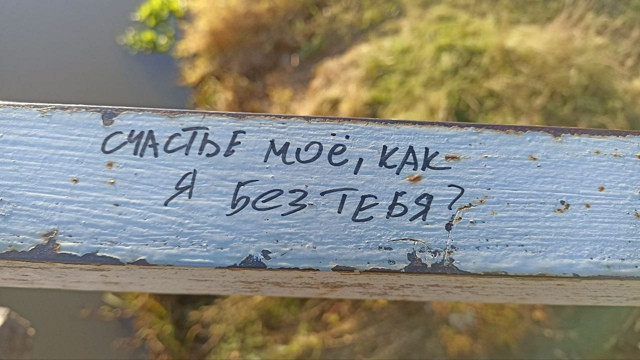 СЧАСТЬЕ МОЁ, КАК
Я БЕЗ ТЕБЯ?